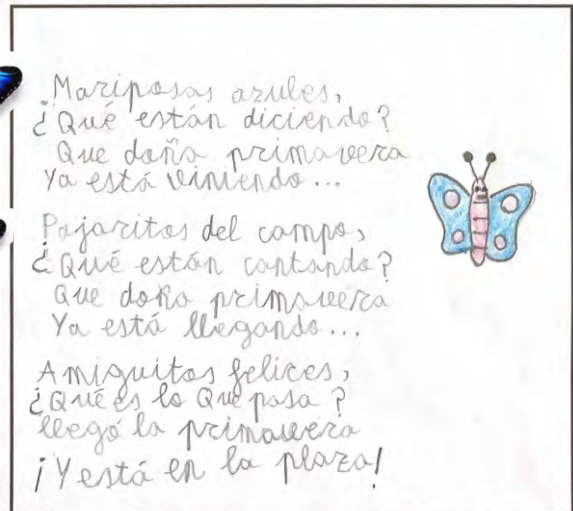 Mariposas azules,
¿Qué están diciendo?
Que doña primavera
Ya está viniendo...
Pajaritos del campo,
¿Qué están cantando?
Que doña primavera
Ya está llegando...
Amiguitos felices,
¿Qué es lo Que pasa?
llegó la primavera
¡Y está en la plaza!